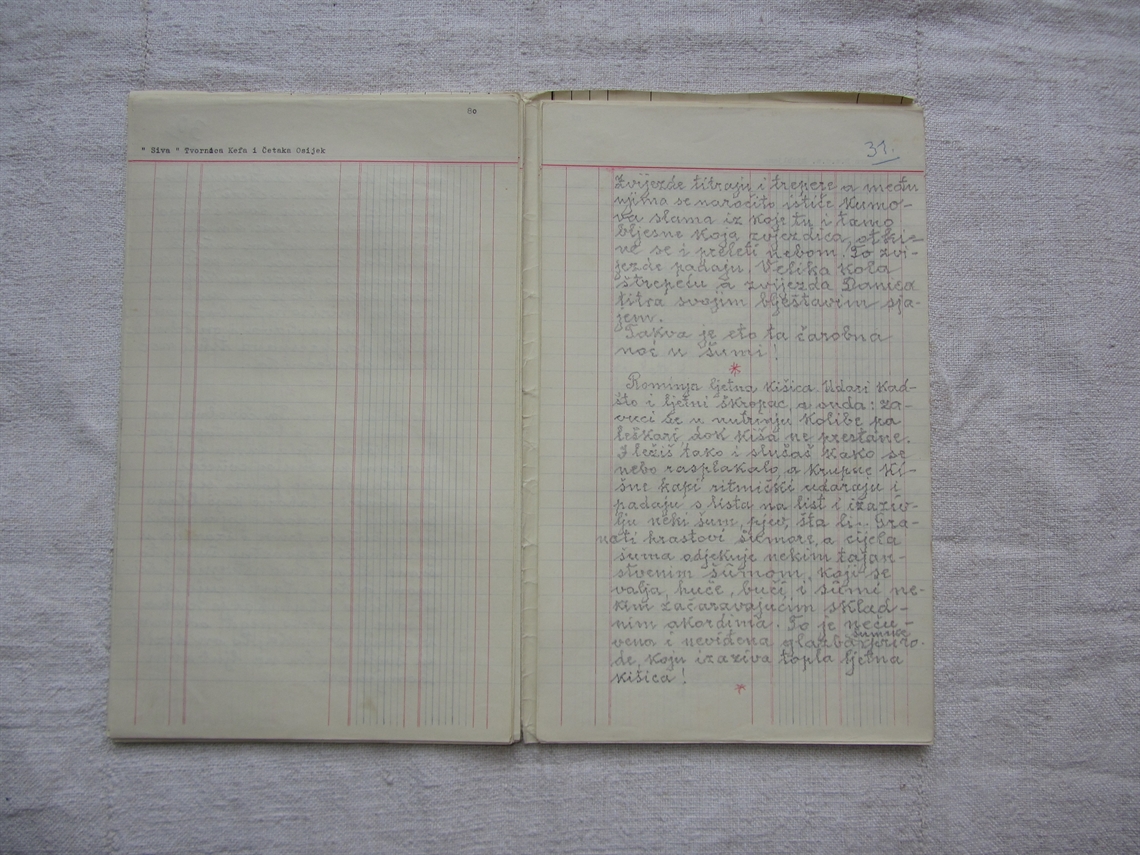 80
" Siva " Tvornica Kefa i Četaka Osijek
31.
Zvijezde titraju i trepere a među
njima se naročito ističe Kumo-
va slama iz koje tu i tamo
bljesne koja zvjezdica, otki-
ne se i preleti nebom. To zvi-
jezde padaju. Velika kola
štrepeću a zvijezda Danica
titra svojim blještavim sja-
jem.
Takva je eto ta čarobna
noć u šumi!
*
Rominja ljetna kišica. Udari kad-
što i ljetni škropac, a onda: za-
vuci se u nutrinju kolibe pa
leškari, dok kiša ne prestane.
I ležiš tako i slušaš kako se
nebo rasplakalo, a krupne ki-
šne kapi ritmički udaraju i
padaju s lista na list i izaziv-
lju neki šum, pjev, šta li. Gra-
nati hrastovi se more, a cijela
šuma odjekuje nekim tajan-
stvenim šumom, koji se
valja, huče, buči, i šumi ne-
kim začaravajućim sklad-
nim akordima. To je neču-
vena i neviđena glazba šumske priro-
de, koju izaziva topla ljetna
kišica!
*